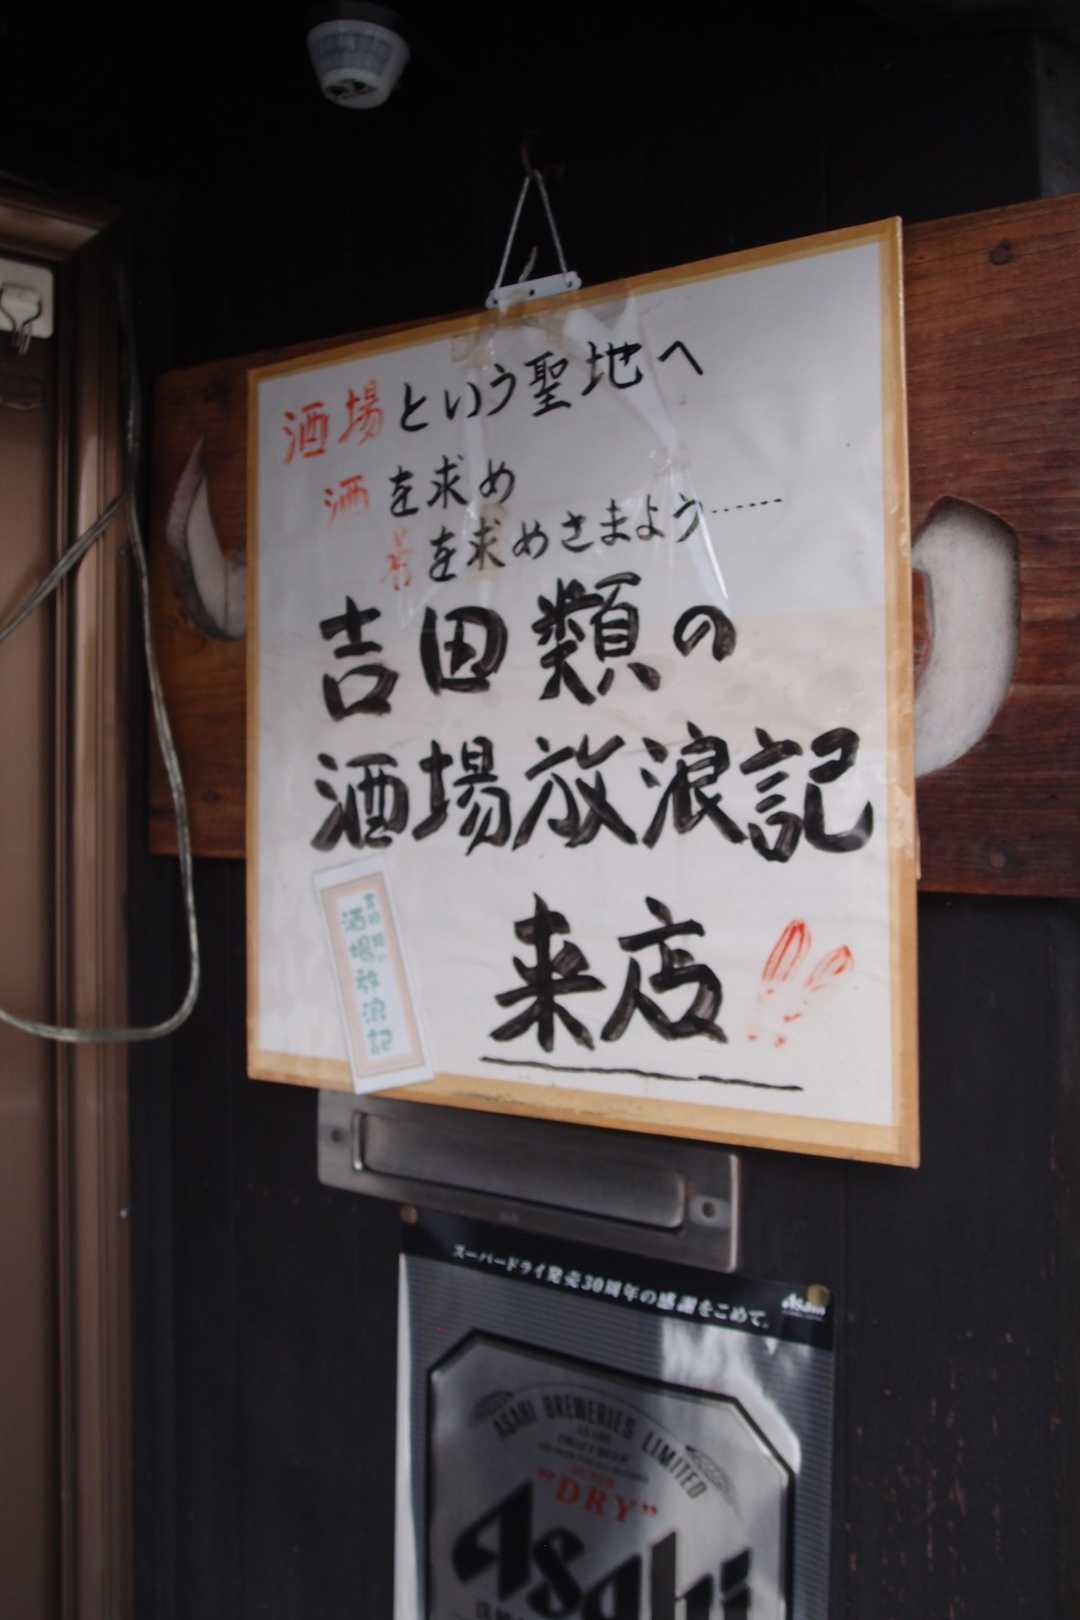 酒場という聖地へ
酒を求め
肴を求めさまよう……
吉田類の
酒場放浪記
来店!!
吉田類の
酒場放浪記
スーパードライ発売30周年の感謝をこめて。
Asahi
ASAHI BREWERIES LIMITED
"DRY"
Asahi